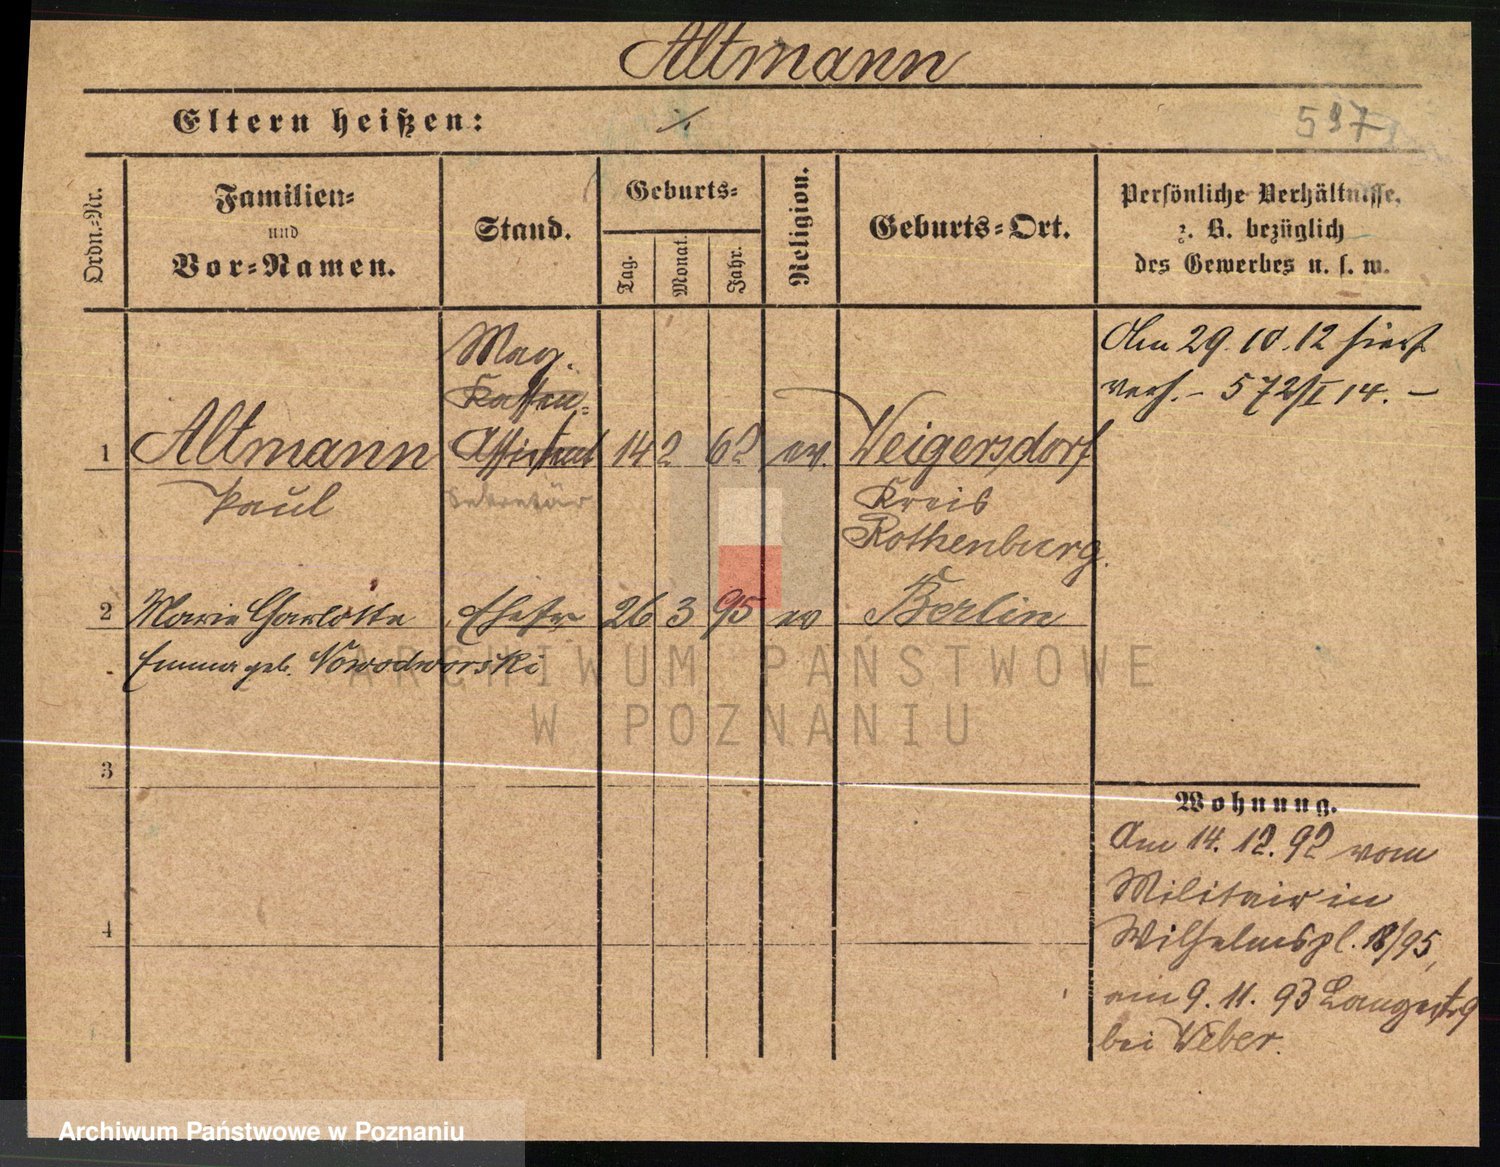 Altmann
Eltern heißen: ./.
597
Ordn.-Nr.
Familien-
und
Vor-Namen.
Stand.
Geburts-
Tag.
Monat.
Jahr.
Religion.
Geburts-Ort.
Persönliche Verhältnisse,
z. B. bezüglich
des Gewerbes u. s. w.
Mag.
Kassen-
1 Altmann Assistent 14 2 62 ev. Weigersdorf
Paul Sekretär Kreis
Rothenburg.
Am 29.10.12 hier
verh. - 572/I 14. -
2 Marie Charlotte Ehefr 26 3 95 ev Berlin
Emma geb. Nowodworski
3
4
Wohnung.
Am 14.12.92 vom
Militair in
Wilhelmspl. 18/95,
am 9.11.93 Langestr 9
bei Weber.
ARCHIWUM PAŃSTWOWE
W POZNANIU
Archiwum Państwowe w Poznaniu